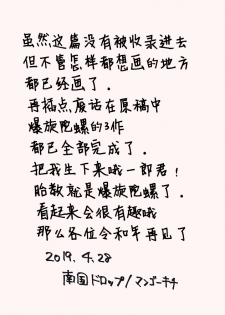 虽然这篇没有被收录进去
但不管怎样都想画的地方
都已经画了．
再插点废话在原稿中
爆旋陀螺的3作
都已全部完成了．
把我生下来哦一郎君！
胎教就是爆旋陀螺了．
看起来会很有趣哦
那么各位令和年再见了
2019．4．28
南国ドロップ/マンゴーキチ